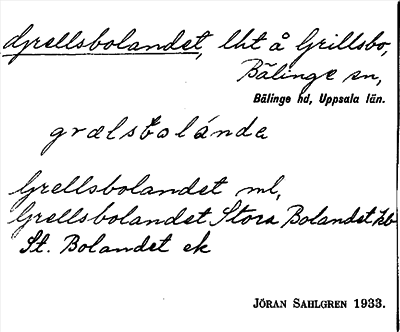 Grellsbolandet, lht å Grillsbo,
Bälinge sn,
Bälinge hd, Uppsala län.
grælsbolánda
Grellsbolandet ml,
Grellsbolandet Stora Bolandet hb
St. Bolandet ek
JÖRAN SAHLGREN 1933.